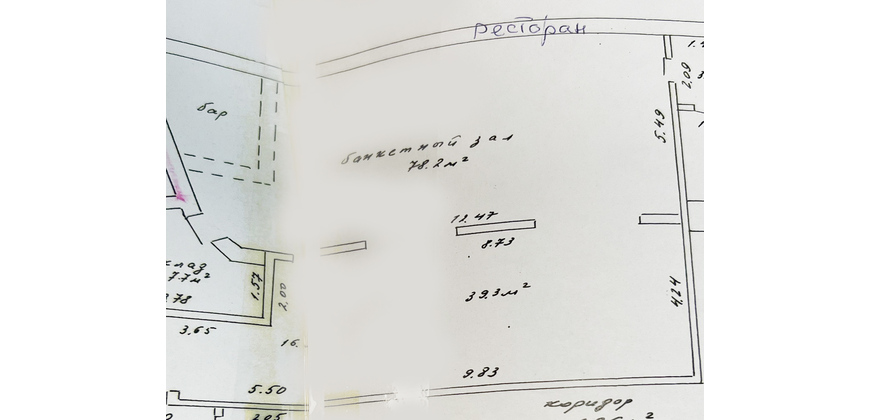 Ресторан
2.09
бар
5.49
банкетный зал
78.2 м²
11.47
8.73
склад
7.7 м²
1.57
2.00
3.78
39.3 м²
4.24
3.65
16.
9.83
5.50
коридор
2.05